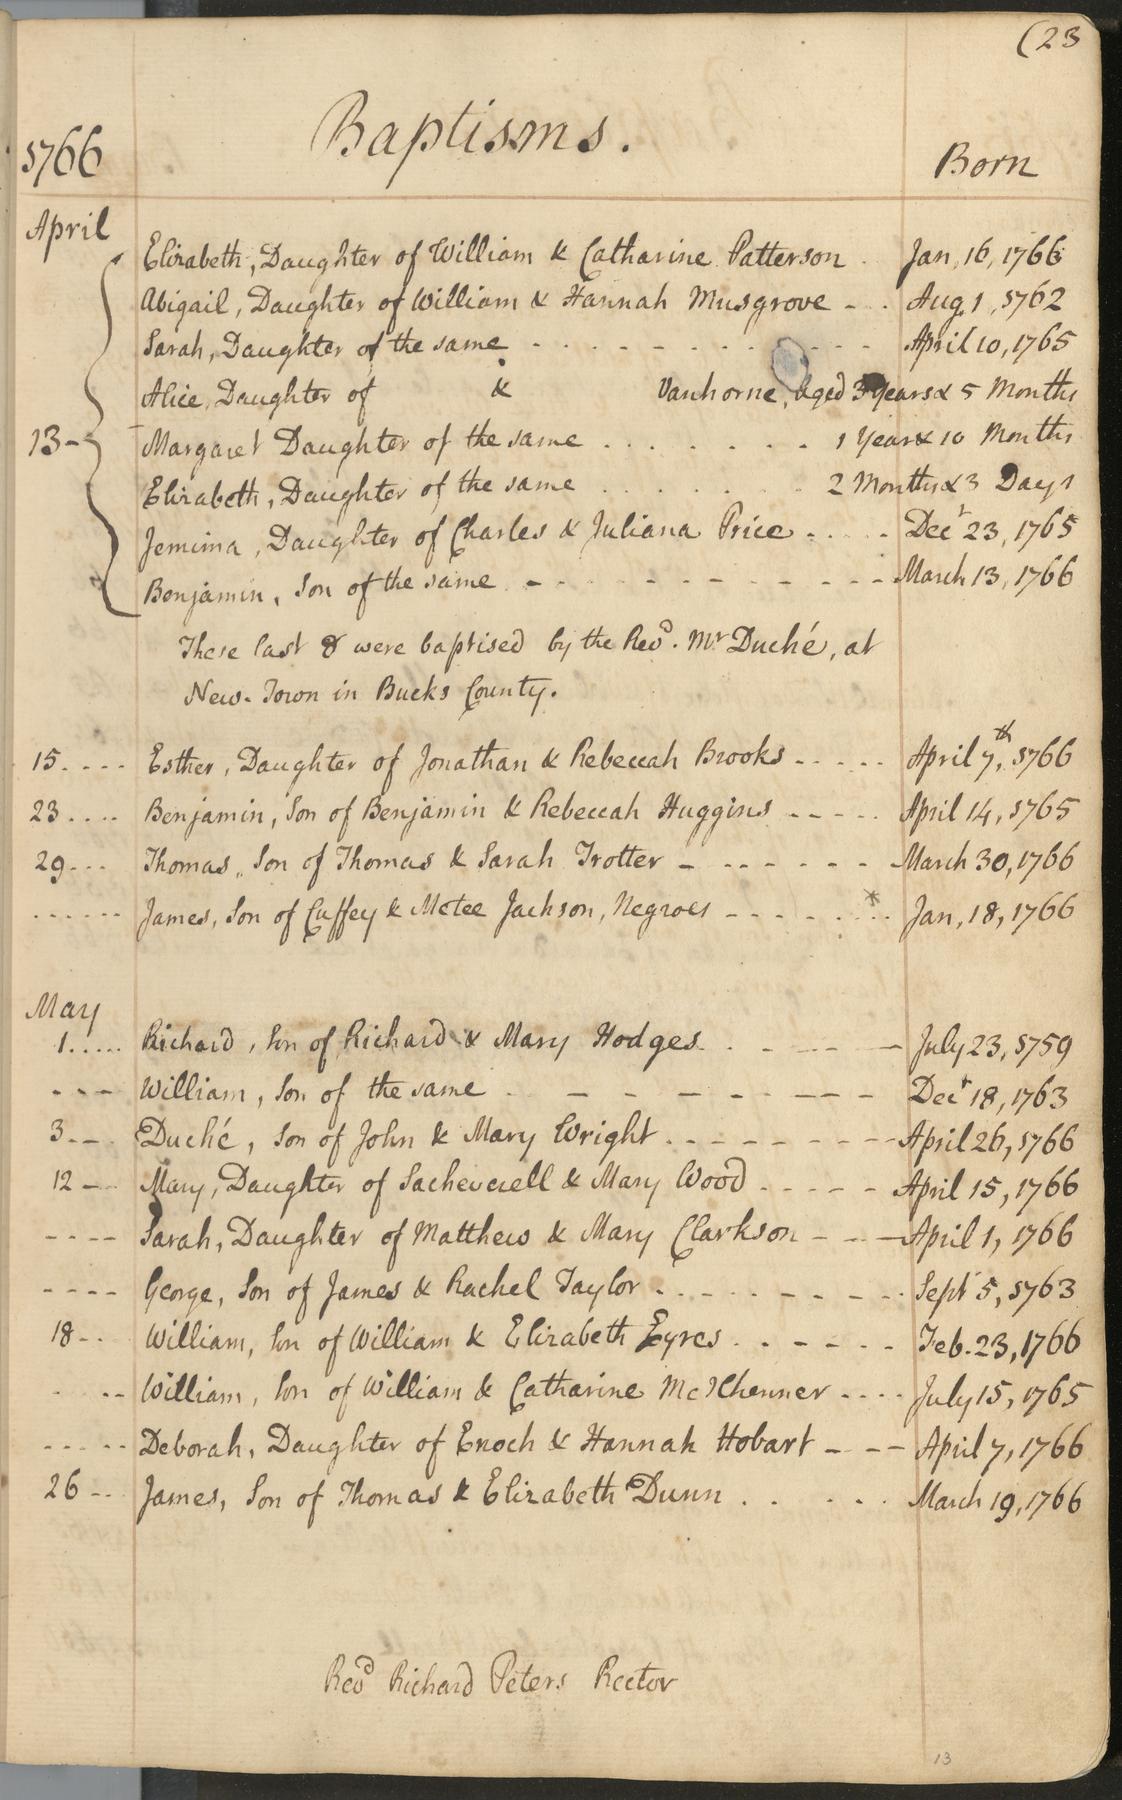 (23
1766 Baptisms. Born
April
Elizabeth, Daughter of William & Catharine Patterson . Jan, 16, 1766
Abigail, Daughter of William & Hannah Musgrove - . Aug. 1, 1762
Sarah, Daughter of the same - - - - - - - - April 10, 1765
Alice, Daughter of & Vanhorne, Aged 3 Years & 5 Months
13 - Margaret Daughter of the same . . . . . . . 1 Year & 10 Months
Elizabeth, Daughter of the same . . . . . . 2 Months & 3 Days
Jemima, Daughter of Charles & Juliana Price . . . . . Decr 23, 1765
Benjamin, Son of the same - - - - - - - - - March 13, 1766
These last 8 were baptised by the Revd. Mr Duché, at
New-Town in Bucks County.
15. . . . Esther, Daughter of Jonathan & Rebeccah Brooks - - - - - April 7th, 1766
23 . . . . Benjamin, Son of Benjamin & Rebeccah Huggins - - - - - April 14, 1765
29 - - - Thomas, Son of Thomas & Sarah Trotter - - - - - - - March 30, 1766
- - - - - - James, Son of Cuffey & Mctee Jackson, Negroes - - - - - * - - Jan, 18, 1766
May
1. . . . . Richard, Son of Richard & Mary Hodges . . - - - - July 23, 1759
- - - William, Son of the same - - - - - - - - - Decr 18, 1763
3 - - . Duché, Son of John & Mary Wright . - - - - - - - - April 26, 1766
12 - - Mary, Daughter of Sacheverell & Mary Wood . - - - - April 15, 1766
- - - - Sarah, Daughter of Matthew & Mary Clarkson - - - April 1, 1766
- - - - George, Son of James & Rachel Taylor . - - - - - - - - Sept 5, 1763
18 - . William, Son of William & Elizabeth Eyres . . - - - - Feb. 23, 1766
. . - - William, Son of William & Catharine McKhenner - - - - July 15, 1765
- - - - - Deborah, Daughter of Enoch & Hannah Hobart - - - April 7, 1766
26 - . James, Son of Thomas & Elizabeth Dunn . . . . . March 19, 1766
Revd Richard Peters Rector
13